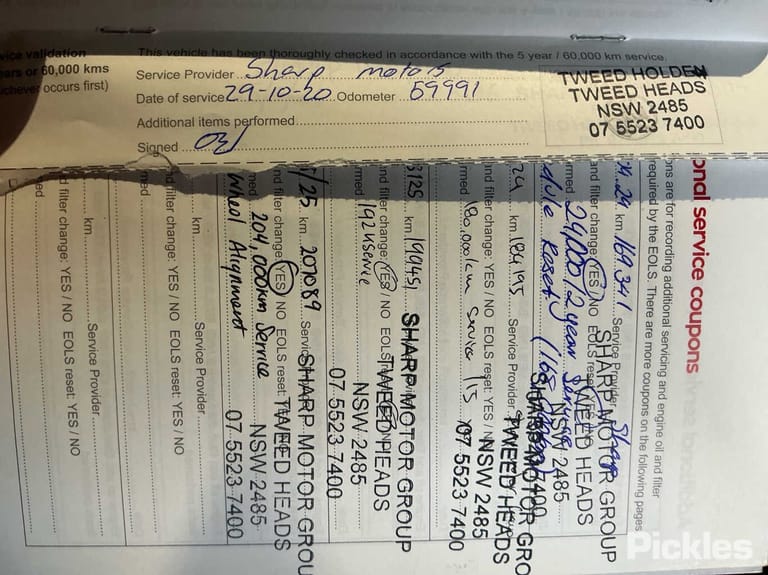 vice validation
ars or 60,000 kms
ichever occurs first)
This vehicle has been thoroughly checked in accordance with the 5 year / 60,000 km service.
Service Provider Sharp motors
Date of service 29-10-20 Odometer 59991
Additional items performed
Signed
TWEED HOLDEN
TWEED HEADS
NSW 2485
07 5523 7400
onal service coupons
ns are for recording additional servicing and engine oil and filter
required by the EOLS. There are more coupons on the following pages
.24 km 169,341 Service Provider Sharp
nd filter change: YES / NO EOLS reset: YES / NO
med 24,000/2 year Service
dule Reset (168
SHARP MOTOR GROUP
TWEED HEADS
NSW 2485
24 km 184,195 Service Provider
nd filter change: YES / NO EOLS reset: YES / NO
rmed 180,000km service
SHARP MOTOR GRO
TWEED HEADS
NSW 2485
07 5523 7400
3/25 km 199451
nd filter change: YES / NO EOLS
rmed 192K service
SHARP MOTOR GROUP
TWEED HEADS
NSW 2485
07 5523 7400
/25 km 207089 Service
nd filter change: YES / NO EOLS reset:
med 204,000km Service
Wheel Alignment
SHARP MOTOR GROU
TWEED HEADS
NSW 2485
07 5523 7400
km Service Provider
nd filter change: YES / NO EOLS reset: YES / NO
med
km Service Provider
nd filter change: YES / NO EOLS reset: YES / NO
ed
Pickles